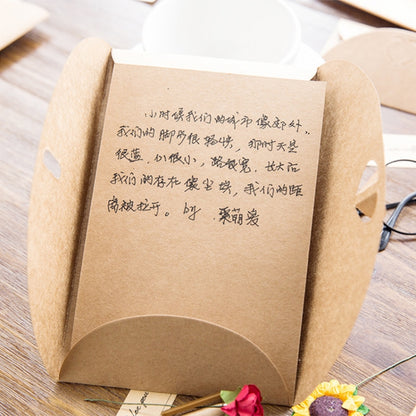 小时候我们的城市像郊外,
我们的脚步很轻快,那时天是
很蓝,心很小,路很宽,长大后
我们的存在像尘埃,我们的距
离被拉开。by.